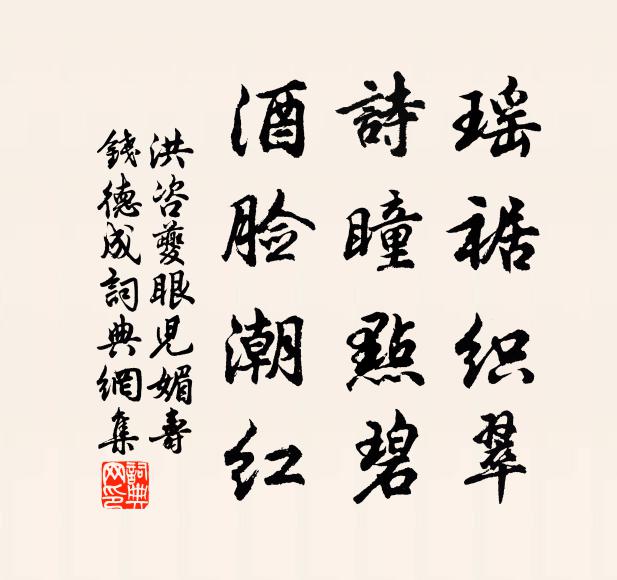 瑶裾织翠
詩瞳點碧
酒脸潮红
洪咨夔眼児媚壽
錢德成詞典網集
詞典网印